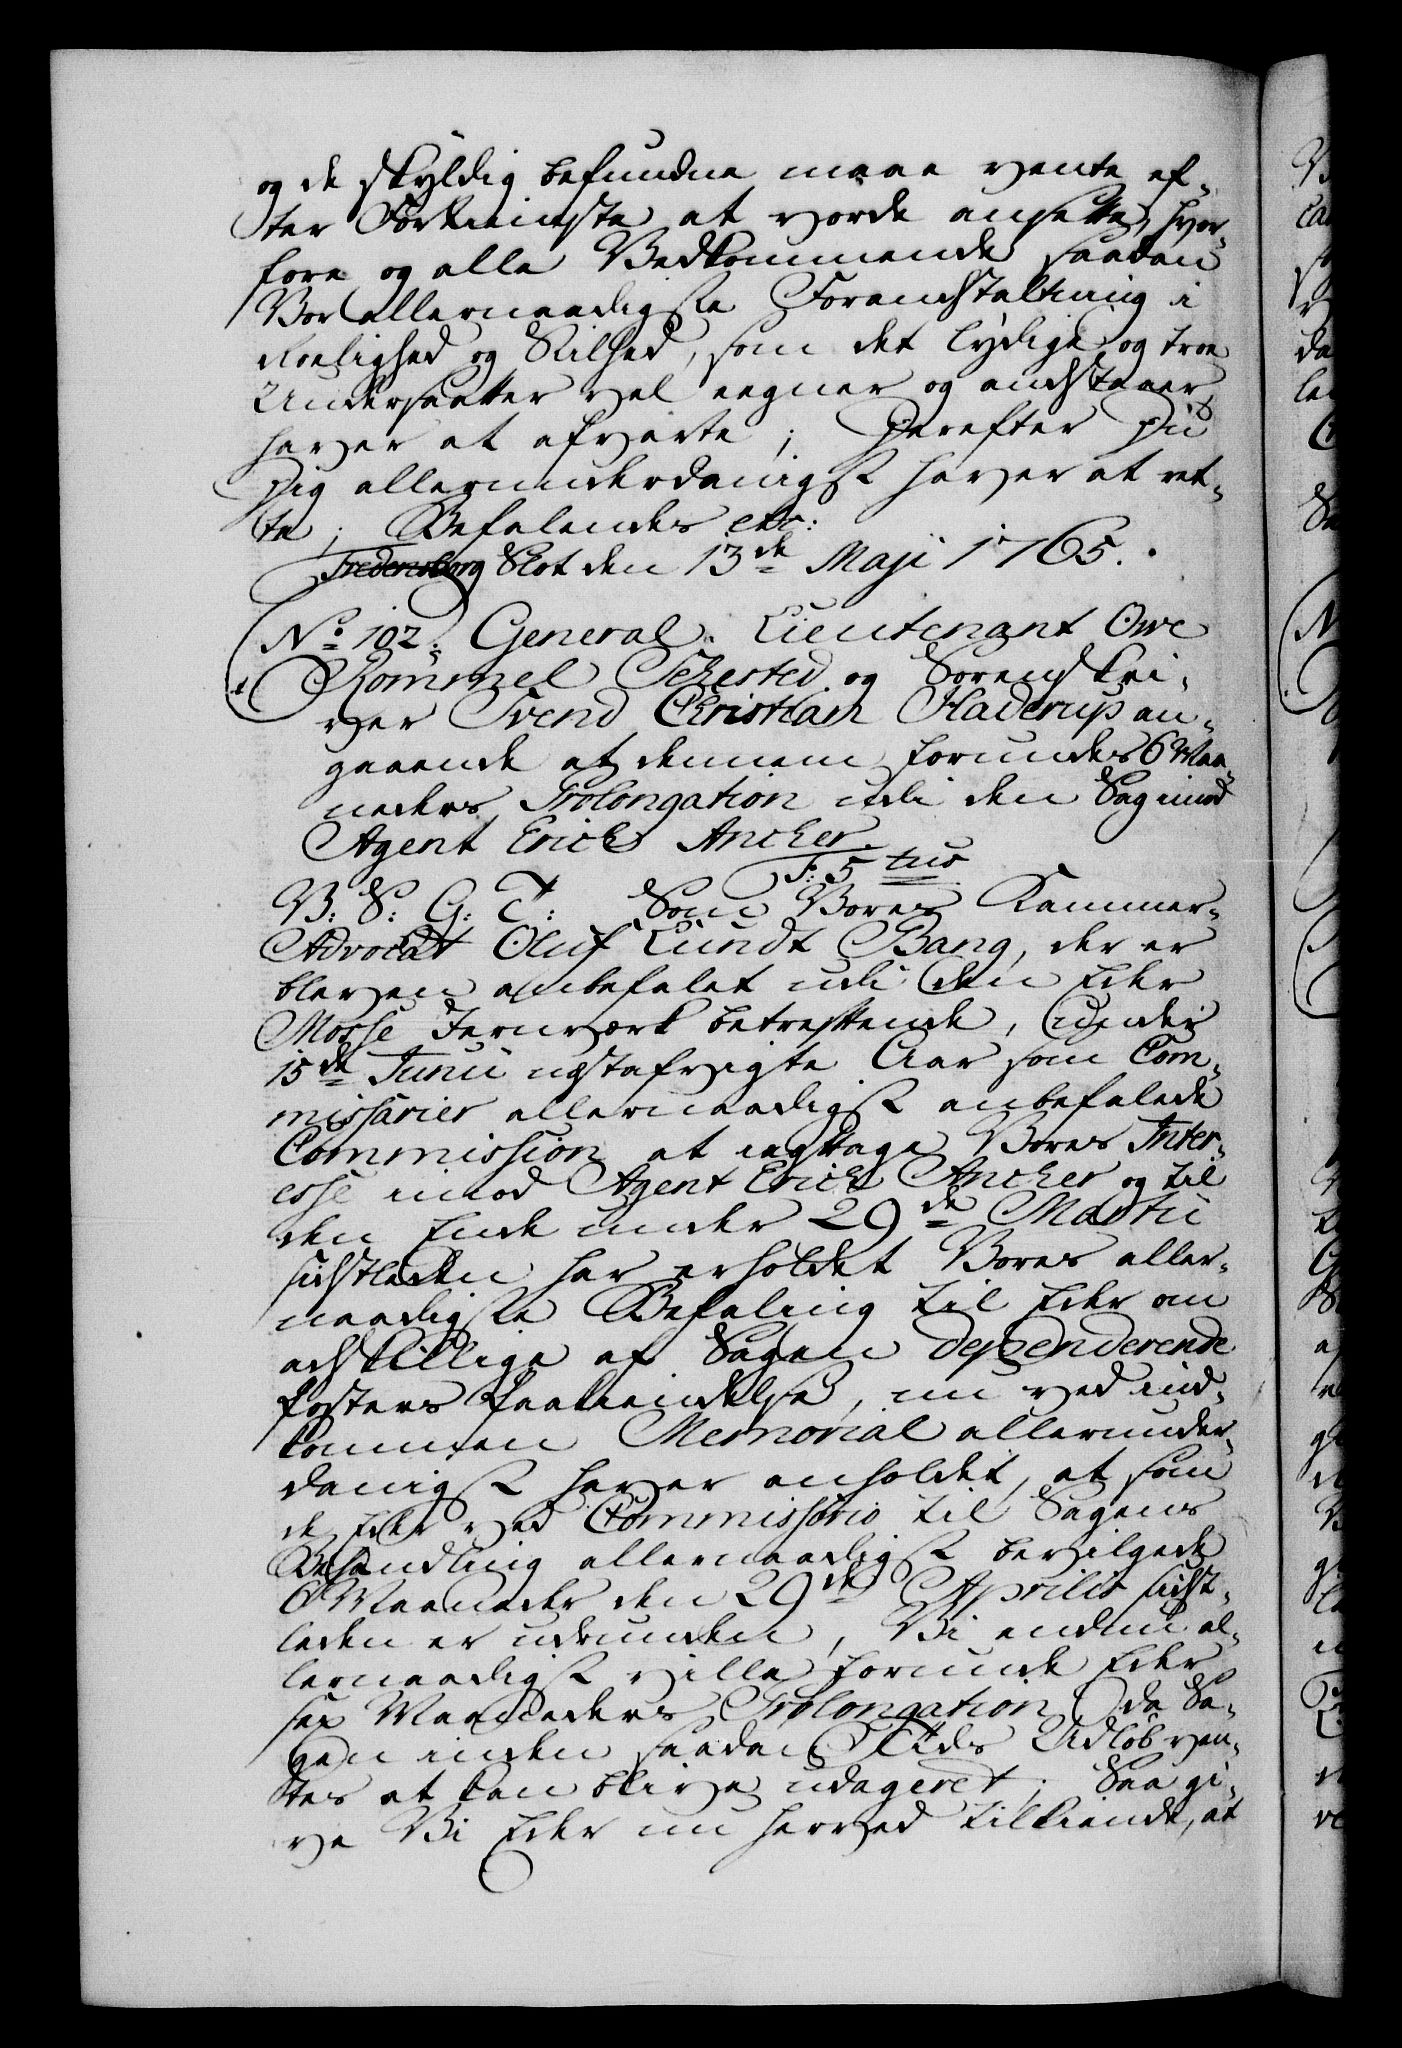 og de skyldig befundne maae vente ef-
ter Fortieniste at vorde ansette, hvor-
fore og alle Vedkommende saadan
Vor allernaadigste Foranstaltning i
Roelighed og Stilhed, som det lydige og troe
Undersaatter vel eegner og anstaaer
haver at afvarte; Herefter Du
Dig allerunderdanigst haver at ret-
te; Befalendes etc:
Fredensborg Slot den 13de Maji 1765.
No 102. General Lieutenant Owe
Rommel Sehested og Sorenskri-
ver Svend Christian Haderup an-
gaaende at dennem forundes 6 Maa-
neders Prolongation udi den Sag imod
Agent Erich Ancher.
F: 5 tus
V: S: G: T: Som Vores Kammer-
Advocat Oluf Lundt Bang, der er
bleven anbefalet udi den Eder
Mosse Jernværk betreffende, under
15de Junii næstafvigte Aar som Com-
missarier allernaadigst anbefalede
Commission at iagttage Vores Inter-
esse imod Agent Erich Ancher og til
den Ende under 29de Martii
sidstleden har erholdet Vores aller-
naadigste Befaling til Eder om
adskillige af Sagen dependerende
Posters Paakiendelse, nu ved ind-
kommen Memorial allerunder-
danigst haver anholdet, at som
de Eder ved Commissorio til Sagens
Behandling allernaadigst bevilgede
6 Maaneder den 29de Aprilis sidst-
leden er udrunden, Vi endnu al-
lernaadigst ville forunde Eder
sex Maaneders Prolongation, da Sa-
gen inden saadan Tids Udløb ven-
tes at kan blive udageret; Saa gi-
ve Vi Eder nu herved tilkiende, at